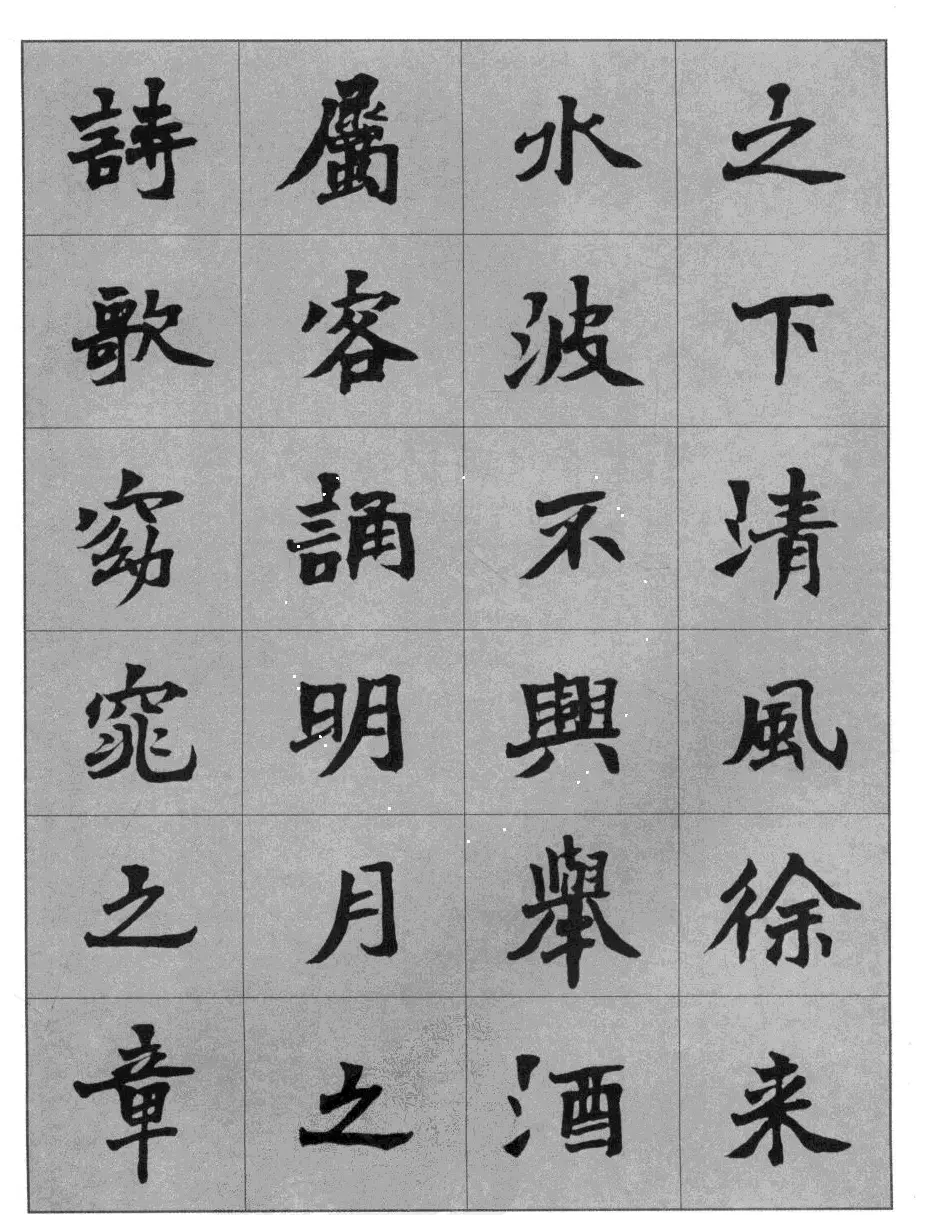 之下清風徐来
水波不興舉酒
屬客誦明月之
詩歌窈窕之章